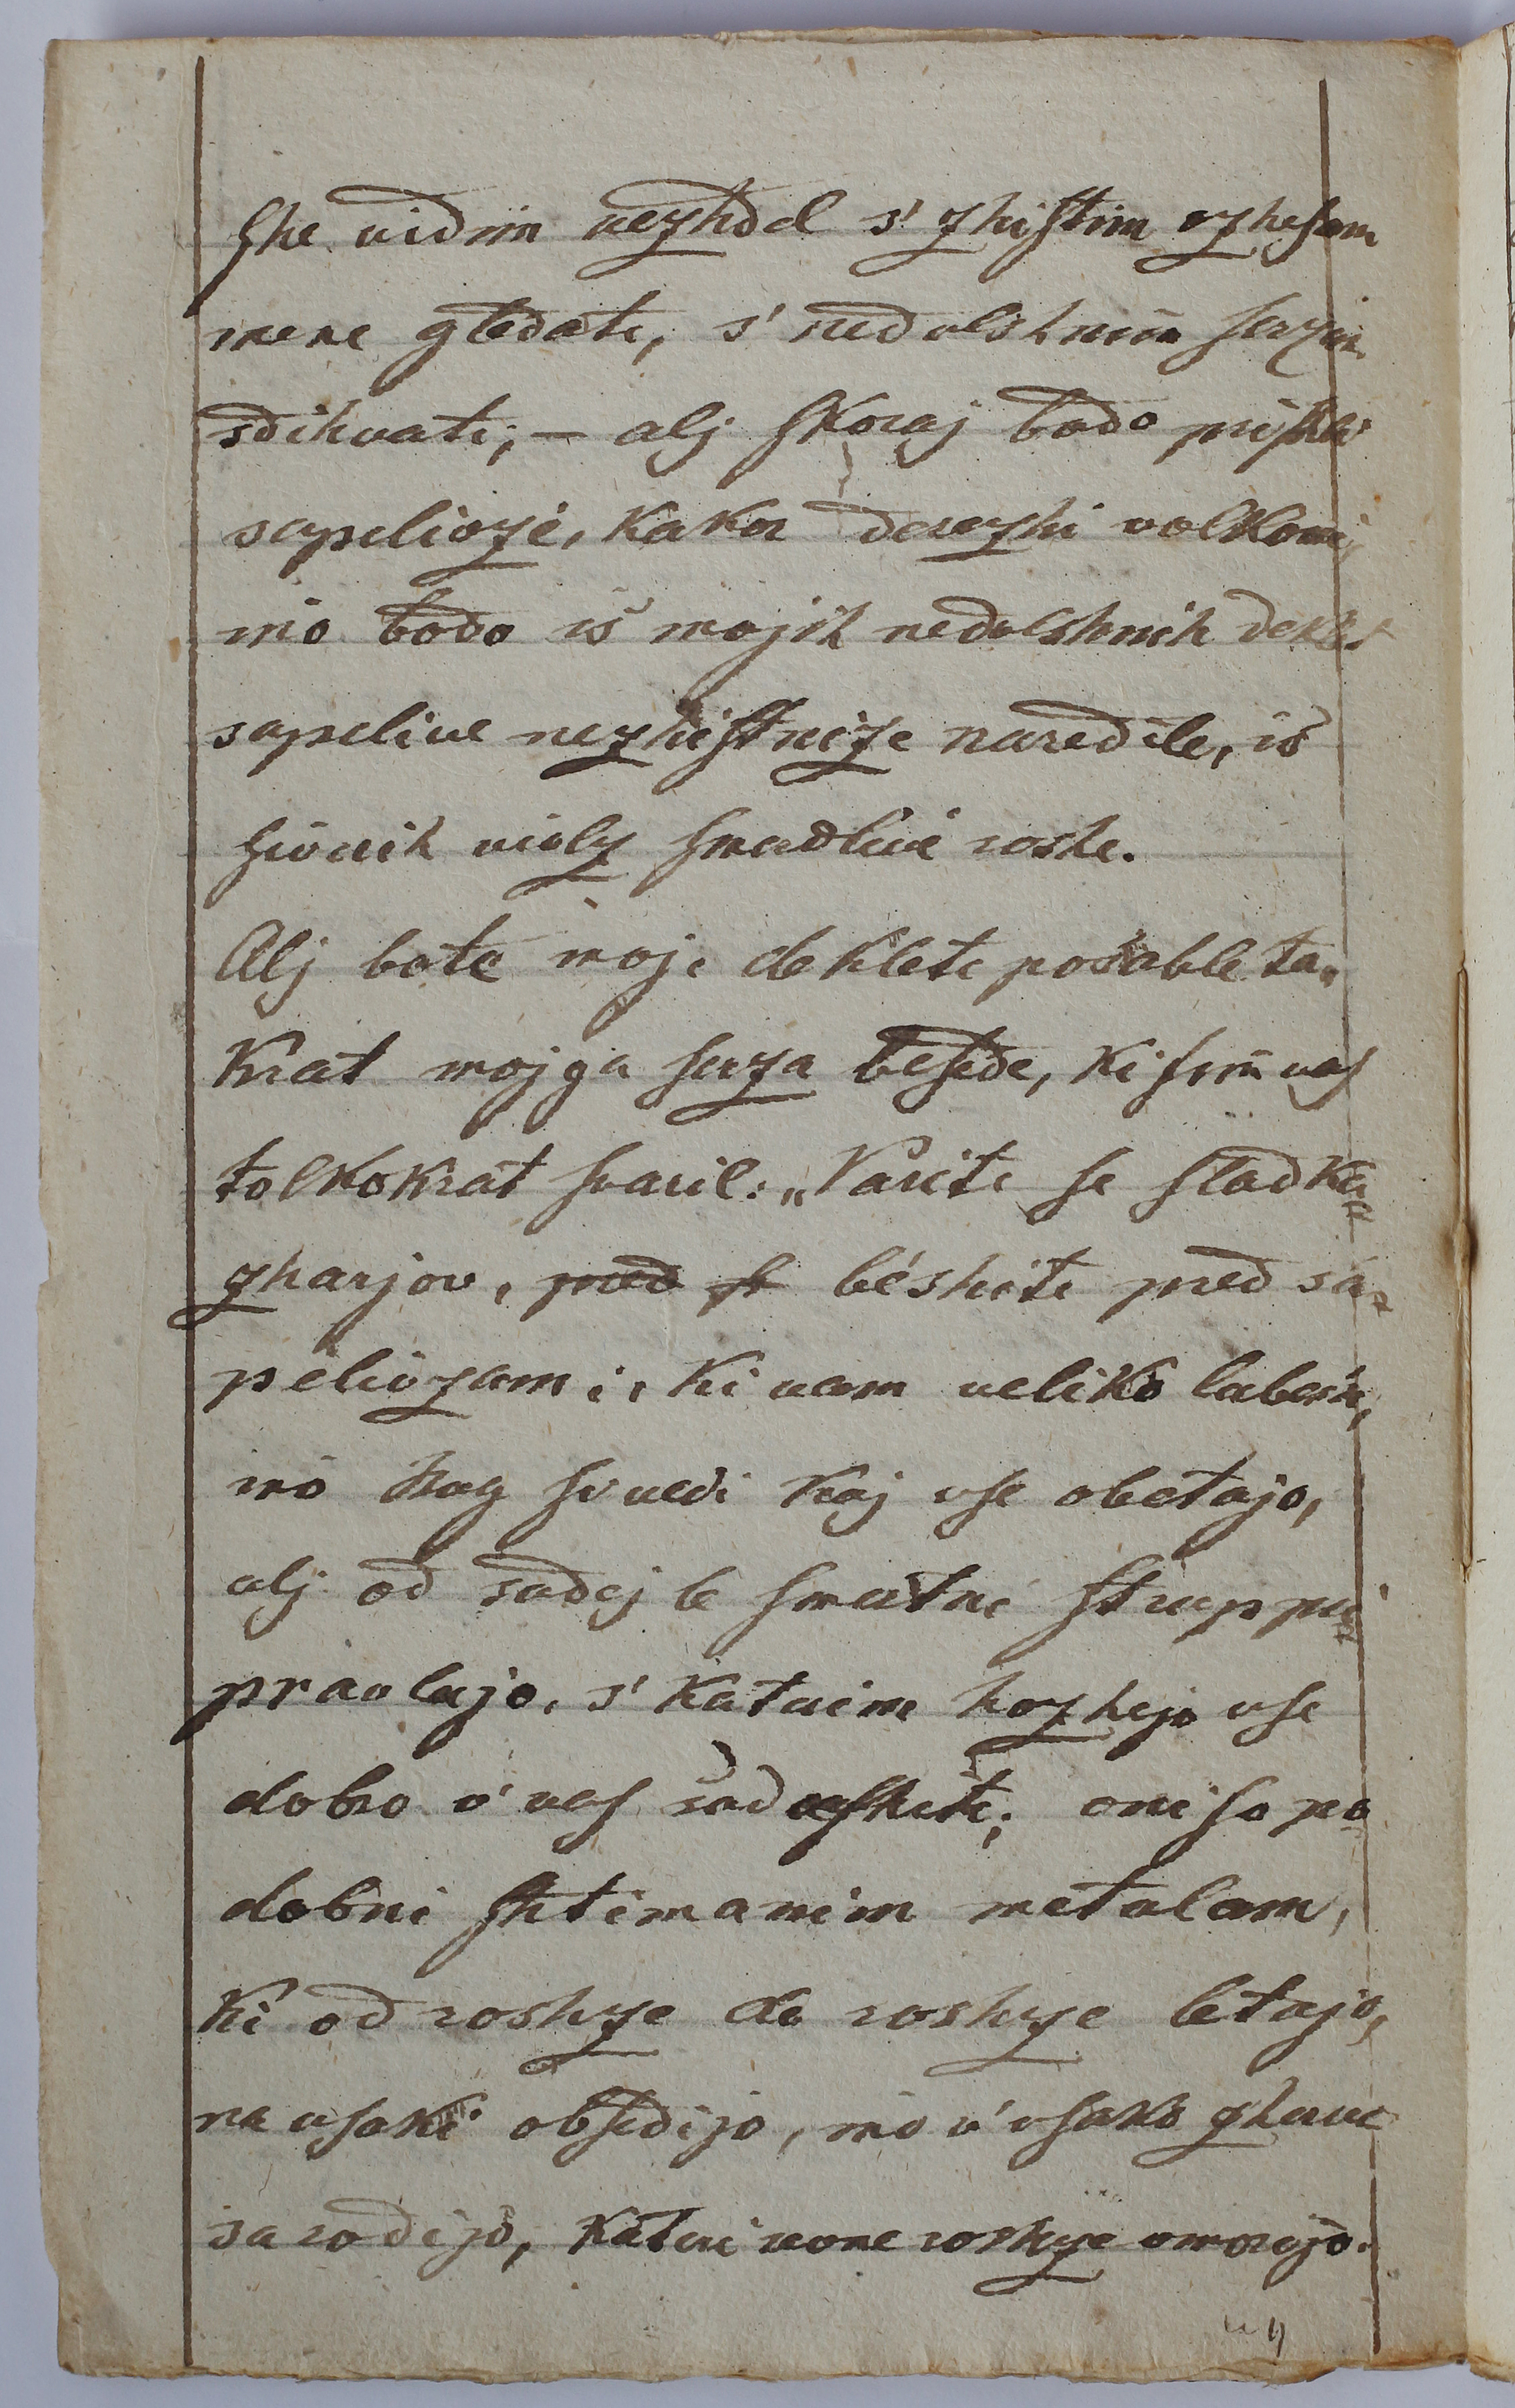 she vidim vezhdel s' zhistim ozhesam
mene gledati, s' nedolshnim serzam
sdihvati; — alj skoraj bodo prishli
sapelivzi, kakor derezhi volkovi,
ino bodo is mojih nedolshnih deklet
sapelive nezhistnize naredile, is
shivnih violz smerdlive roshe.
Alj bote moje deklete posable ta„
krat mojga serza besede, ki sim vas
tolkokrat svaril: „Varite se sladka=
zharjov, pred s béshite pred sa=
pelivzami, ki vam veliko labern,
ino Bug si vedi kaj vse obetajo,
alj od sadej le smertni strupp pri=
pravlajo, s' katrim hozhejo vse
dobro v' vas sadushiti; oni so po=
dobni shtimanim metulam,
ki od roshze do roshze letajo,
na vsaki obsedijo, ino v' vsako zherve
sarodijo, kateri revne roshze vmorijo.